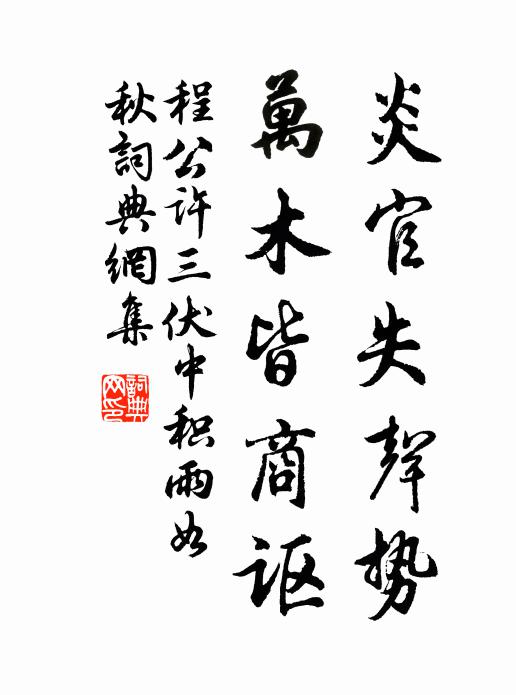 炎官失聲勢
萬木皆商讴
程公許三伏中积雨如
秋詞典網集
詞典
网印